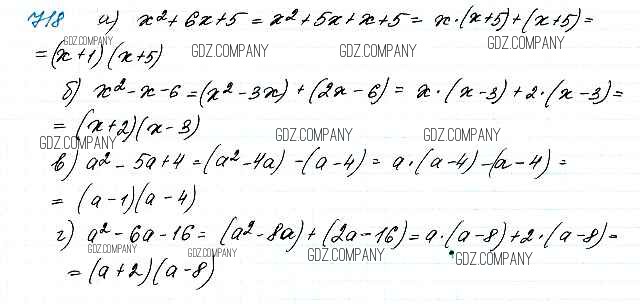 718 а) x²+6x+5 = x²+5x+x+5 = x·(x+5)+(x+5)=
GDZ.COMPANY GDZ.COMPANY GDZ.COMPANY GDZ.COMPANY
=(x+1)(x+5)
б) x²-x-6=(x²-3x)+(2x-6)= x·(x-3)+2·(x-3)=
=(x+2)(x-3)
GDZ.COMPANY GDZ.COMPANY GDZ.COMPANY
в) a²-5a+4=(a²-4a)-(a-4)= a·(a-4)-(a-4)=
=(a-1)(a-4)
г) a²-6a-16= (a²-8a)+(2a-16)=a·(a-8)+2·(a-8)=
GDZ.COMPANY GDZ.COMPANY GDZ.COMPANY GDZ.COMPANY
=(a+2)(a-8)